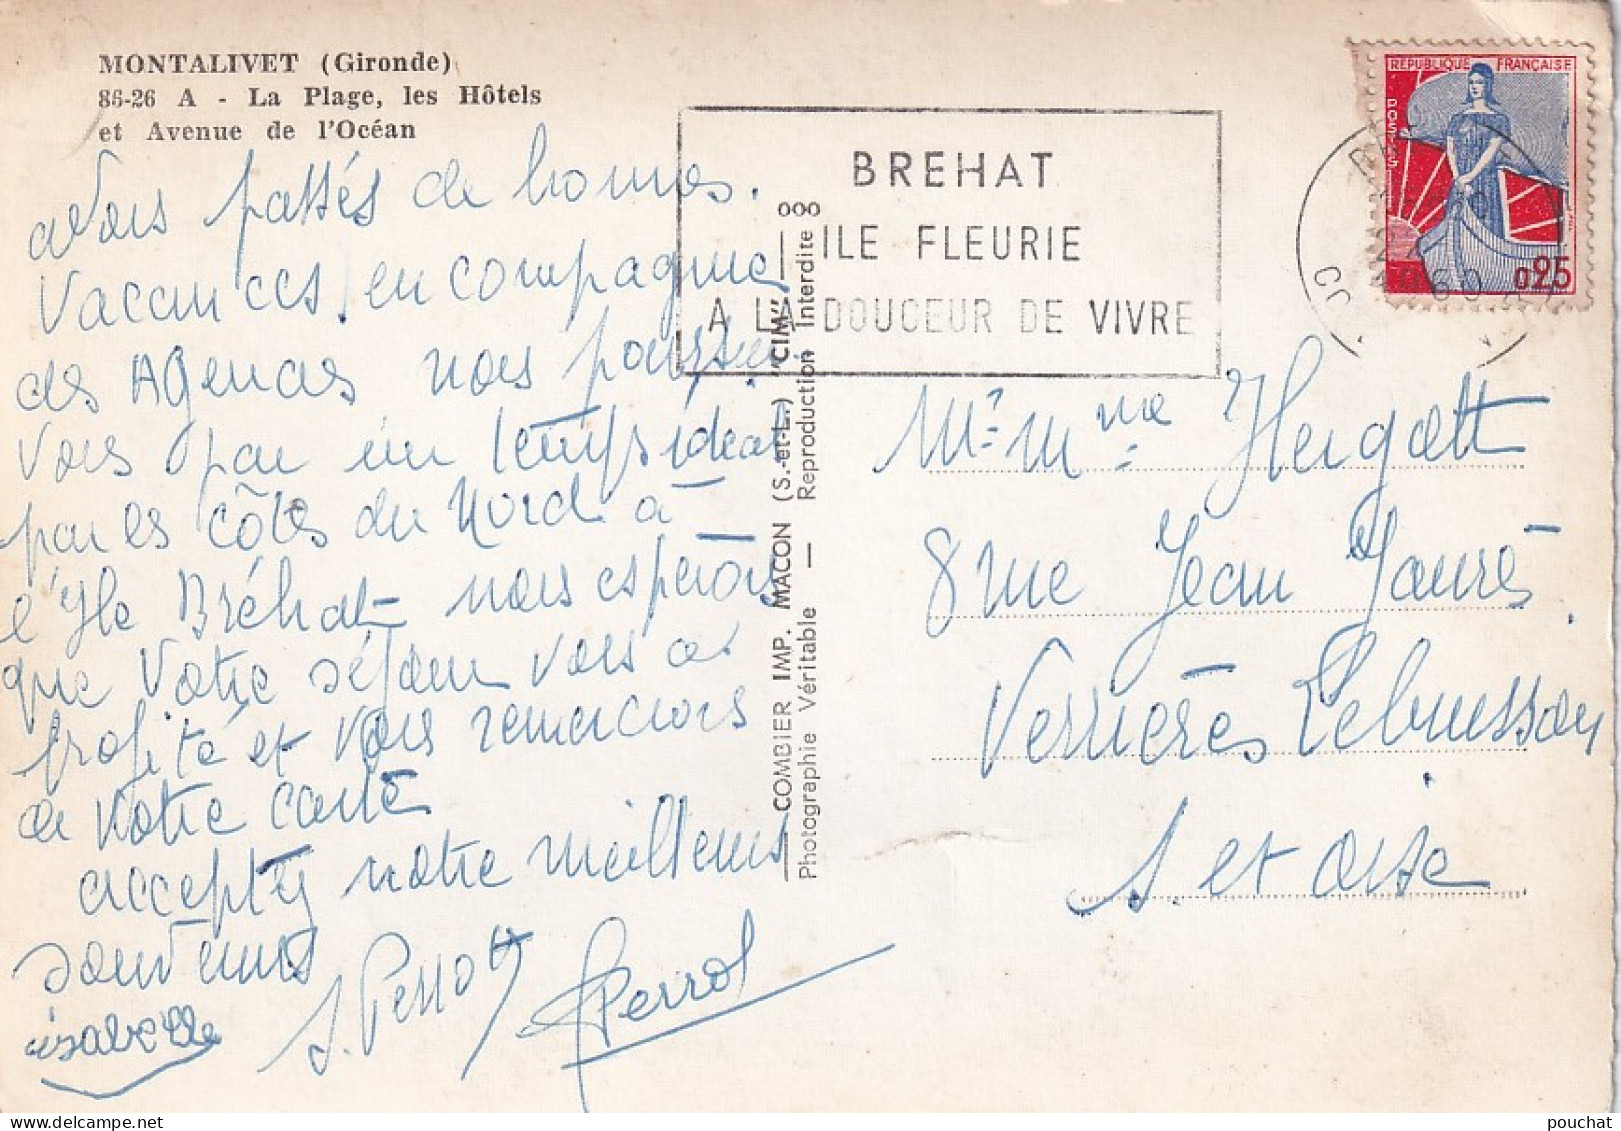 MONTALIVET (Gironde)
86-26 A - La Plage, les Hôtels
et Avenue de l'Océan
passés de bonnes.
Vacances en compagnie
des Agenais nous
vous par un temps ideal
par les côtes du Nord à
l'Ile Bréhat nous esperons
que votre séjour vous as
profité et vous remercions
de votre carte
acceptez notre meilleurs
souvenirs
isabelle
J. Perrot
Perrot
COMBIER IMP. MACON (S.-et-L.) "CIM"
Photographie Véritable — Reproduction Interdite
BREHAT
ILE FLEURIE
A LA DOUCEUR DE VIVRE
REPUBLIQUE FRANÇAISE
POSTES
0,25
1960
Mr Mme Hergott
8 rue Jean Jaurè
Verrières Lebuisson
S et oise
pouchat